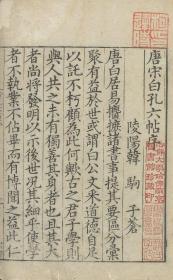 唐宋白孔六帖序
陵陽韓 駒 子蒼
唐白居易攟摭諸書事提其要區分彙
聚有益於世或謂白公文未道德自足
以託不朽顧為此何歟古之君子學則
與人共之未有獨善其身者也且其大
者尚將發明以示後世况其細乎使學
者不執業不佔畢而有博聞之益此仁